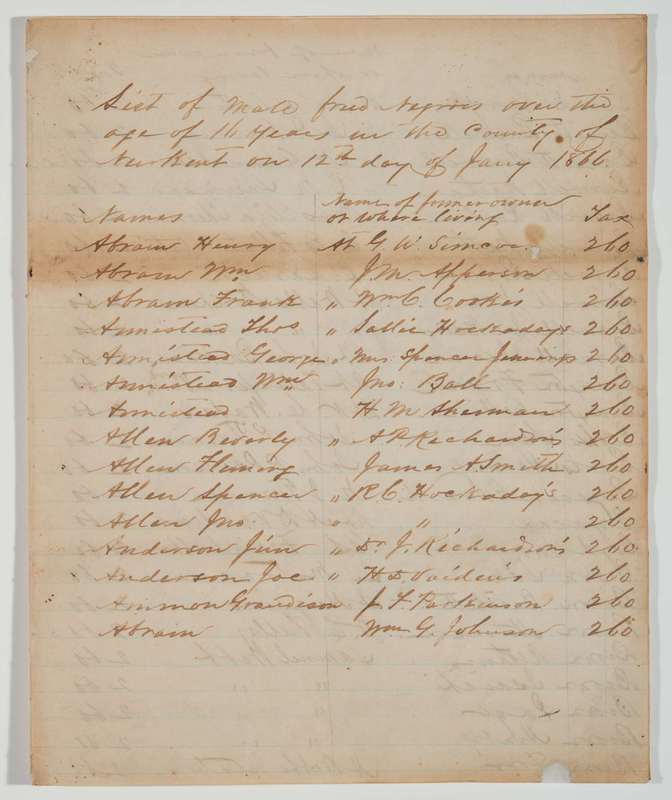 List of Male freed Negroes over the
age of 16 Years in the County of
New Kent on 12th day of Jany 1866.
Names Name of former owner or Where living Tax
Abram Henry At G. W. Simcoe 260
Abram Wm J. M. Apperson 260
Abram Frank " Wm C. Cooke's 260
Armistead Thos " Sallie Hockaday's 260
Armistead George " Mrs Spencer Jennings 260
Armistead Wm Jno: Ball 260
Armistead H M Sherman 260
Allen Beverly " A P. Richardson's 260
Allen Fleming James A Smith 260
Allen Spencer " R. C. Hockaday's 260
Allen Jno. " " 260
Anderson Jim " Dr J. Richardson's 260
Anderson Joe " H D Vaiden's 260
Ammon Grandison J. F. Parkinson 260
Abram Wm G. Johnson 260